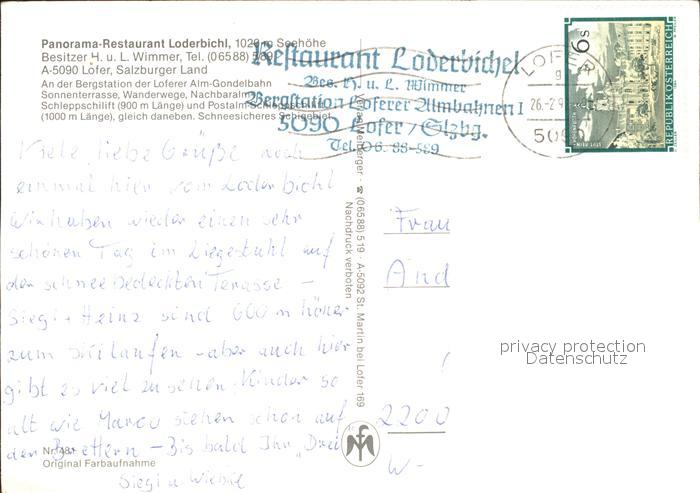 Panorama-Restaurant Loderbichl, 1020 m Seehöhe
Besitzer H. u. L. Wimmer, Tel. (06588) 589
A-5090 Lofer, Salzburger Land
An der Bergstation der Loferer Alm-Gondelbahn
Sonnenterrasse, Wanderwege,
Schleppschilift (900 m Länge) und
(1000 m Länge), gleich daneben. Schneesicheres Schigebiet
Restaurant Loderbichel
Bes. H. u. L. Wimmer
Bergstation Loferer Almbahnen I
5090 Lofer / Slzbg.
Tel. 06. 88-589
LOFER
26.-2.9
5090
6s
REPUBLIK ÖSTERREICH
Viele liebe Grüße noch
einmal hier vom Loderbichl
Wir haben wieder einen sehr
schönen Tag im Liegestuhl auf
der schneebedeckten Terasse –
Siegi + Heinz sind 600 m höher
zum Skilaufen – aber auch hier
gibt es viel zu sehen, Kinder so
alt wie Marco stehen schon auf
den Brettern – Bis bald Ihr "Drei
Siegi u.
Nr. 481
Original Farbaufnahme
(06588) 519 · A-5092 St. Martin bei Lofer 169
Nachdruck verboten
Frau
And
!
2200
W-
privacy protection
Datenschutz